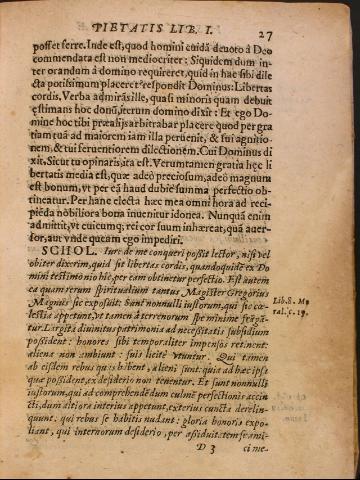 PIETATIS LIB. I. 27
posset ferre. Inde est, quod homini cuidā deuoto à Deo
commendata est non mediocriter: Siquidem dum in-
ter orandum à domino requireret, quid in hac sibi dile
cta potissimum placeret? respondit Dominus: Libertas
cordis. Verba admirās ille, quasi minoris quam debuit
æstimans hoc donū, iterum domino dixit: Et ego Do-
mine hoc tibi præ alijs arbitrabar placere quod per gra
tiam tuā ad maiorem iam illa peruenit, & tui agnitio-
nem, & tui feruentiorem dilectionem. Cui Dominus di
xit, Sicut tu opinaris, ita est. Verumtamen gratia hæc li
bertatis media est, quæ adeò preciosum, adeò magnum
est bonum, vt per eā haud dubiè summa perfectio ob-
tineatur. Per hanc electa hæc mea omni hora ad reci-
piēda nobiliora bona inuenitur idonea. Nunquā enim
admittit, vt cuicumq; rei cor suum inhæreat, quā auer-
sor, aut vnde queam ego impediri.
SCHOL. Iure de me conqueri possit lector, nisi vel
obiter dixerim, quid sit libertas cordis, quandoquidē ex Do
mini testimonio hîc, per eam obtinetur perfectio. Est autem
ea quam rerum spiritualium tantus Magister Gregorius
Magnus sic exposuit: Sunt nonnulli iustorum, qui sic cæ-
lestia appetunt, vt tamen à terrenorum spe minimè frāgā-
tur. Largita diuinitus patrimonia ad necessitatis subsidium
possident: honores sibi temporaliter impensos retinent:
aliena non ambiunt: suis licitè vtuntur. Qui tamen
ab eisdem rebus quas habent, alieni sunt: quia ad hæc ipsa
quæ possident, ex desiderio non tenentur. Et sunt nonnulli
iustorum, qui ad comprehendēdum culmē perfectionis accin
cti, dum altiora interius appetunt, exterius cuncta derelin-
quunt. qui rebus se habitis nudant: gloria honoris expo-
liant, qui internorum desiderio, per assiduitatem se ami-
Lib. 8. Mo
ral. c. 19.
D 3
ci me-